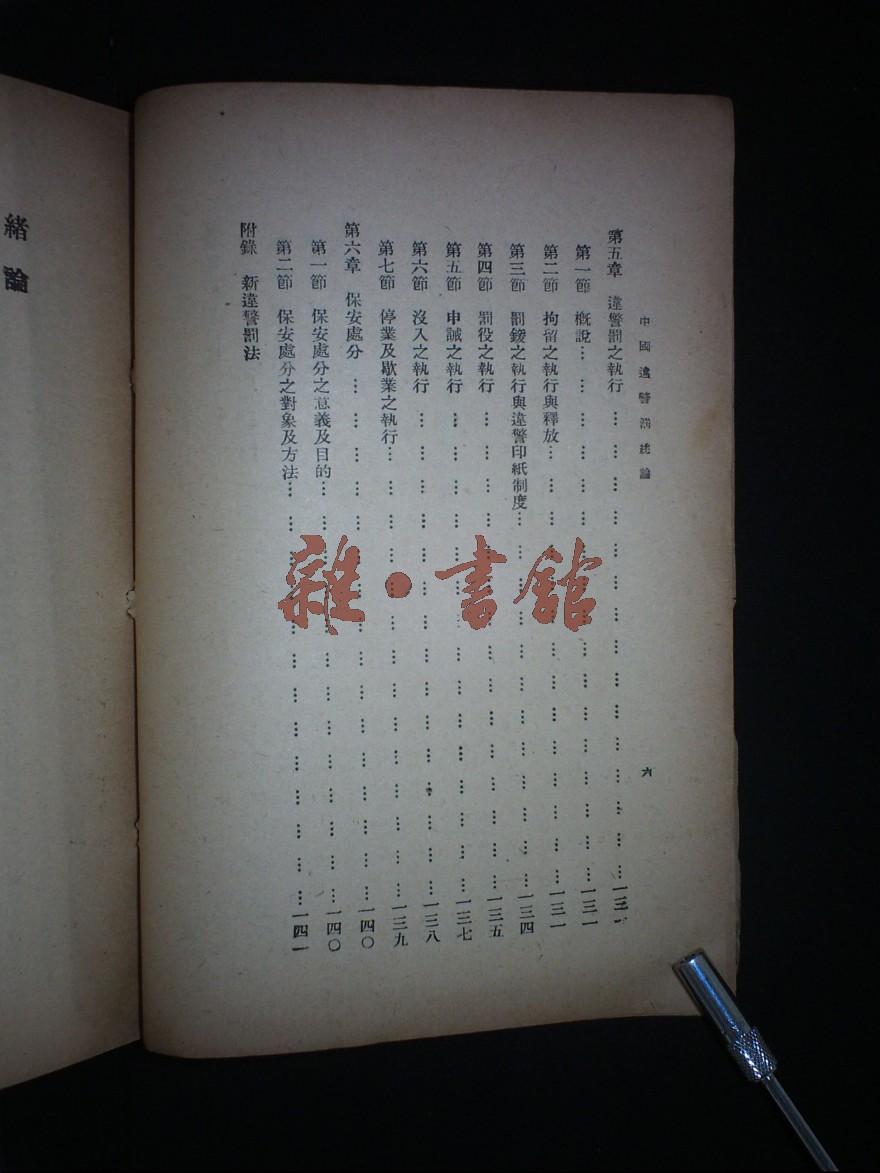 中國違警罰總論
六
第五章 違警罰之執行………………………………………一三一
第一節 概說………………………………………一三一
第二節 拘留之執行與釋放………………………………………一三一
第三節 罰鍰之執行與違警印紙制度………………………………………一三四
第四節 罰役之執行………………………………………一三五
第五節 申誡之執行………………………………………一三七
第六節 沒入之執行………………………………………一三八
第七節 停業及歇業之執行………………………………………一三九
第六章 保安處分………………………………………一四〇
第一節 保安處分之意義及目的………………………………………一四〇
第二節 保安處分之對象及方法………………………………………一四一
附錄 新違警罰法
緒論
雜·書館